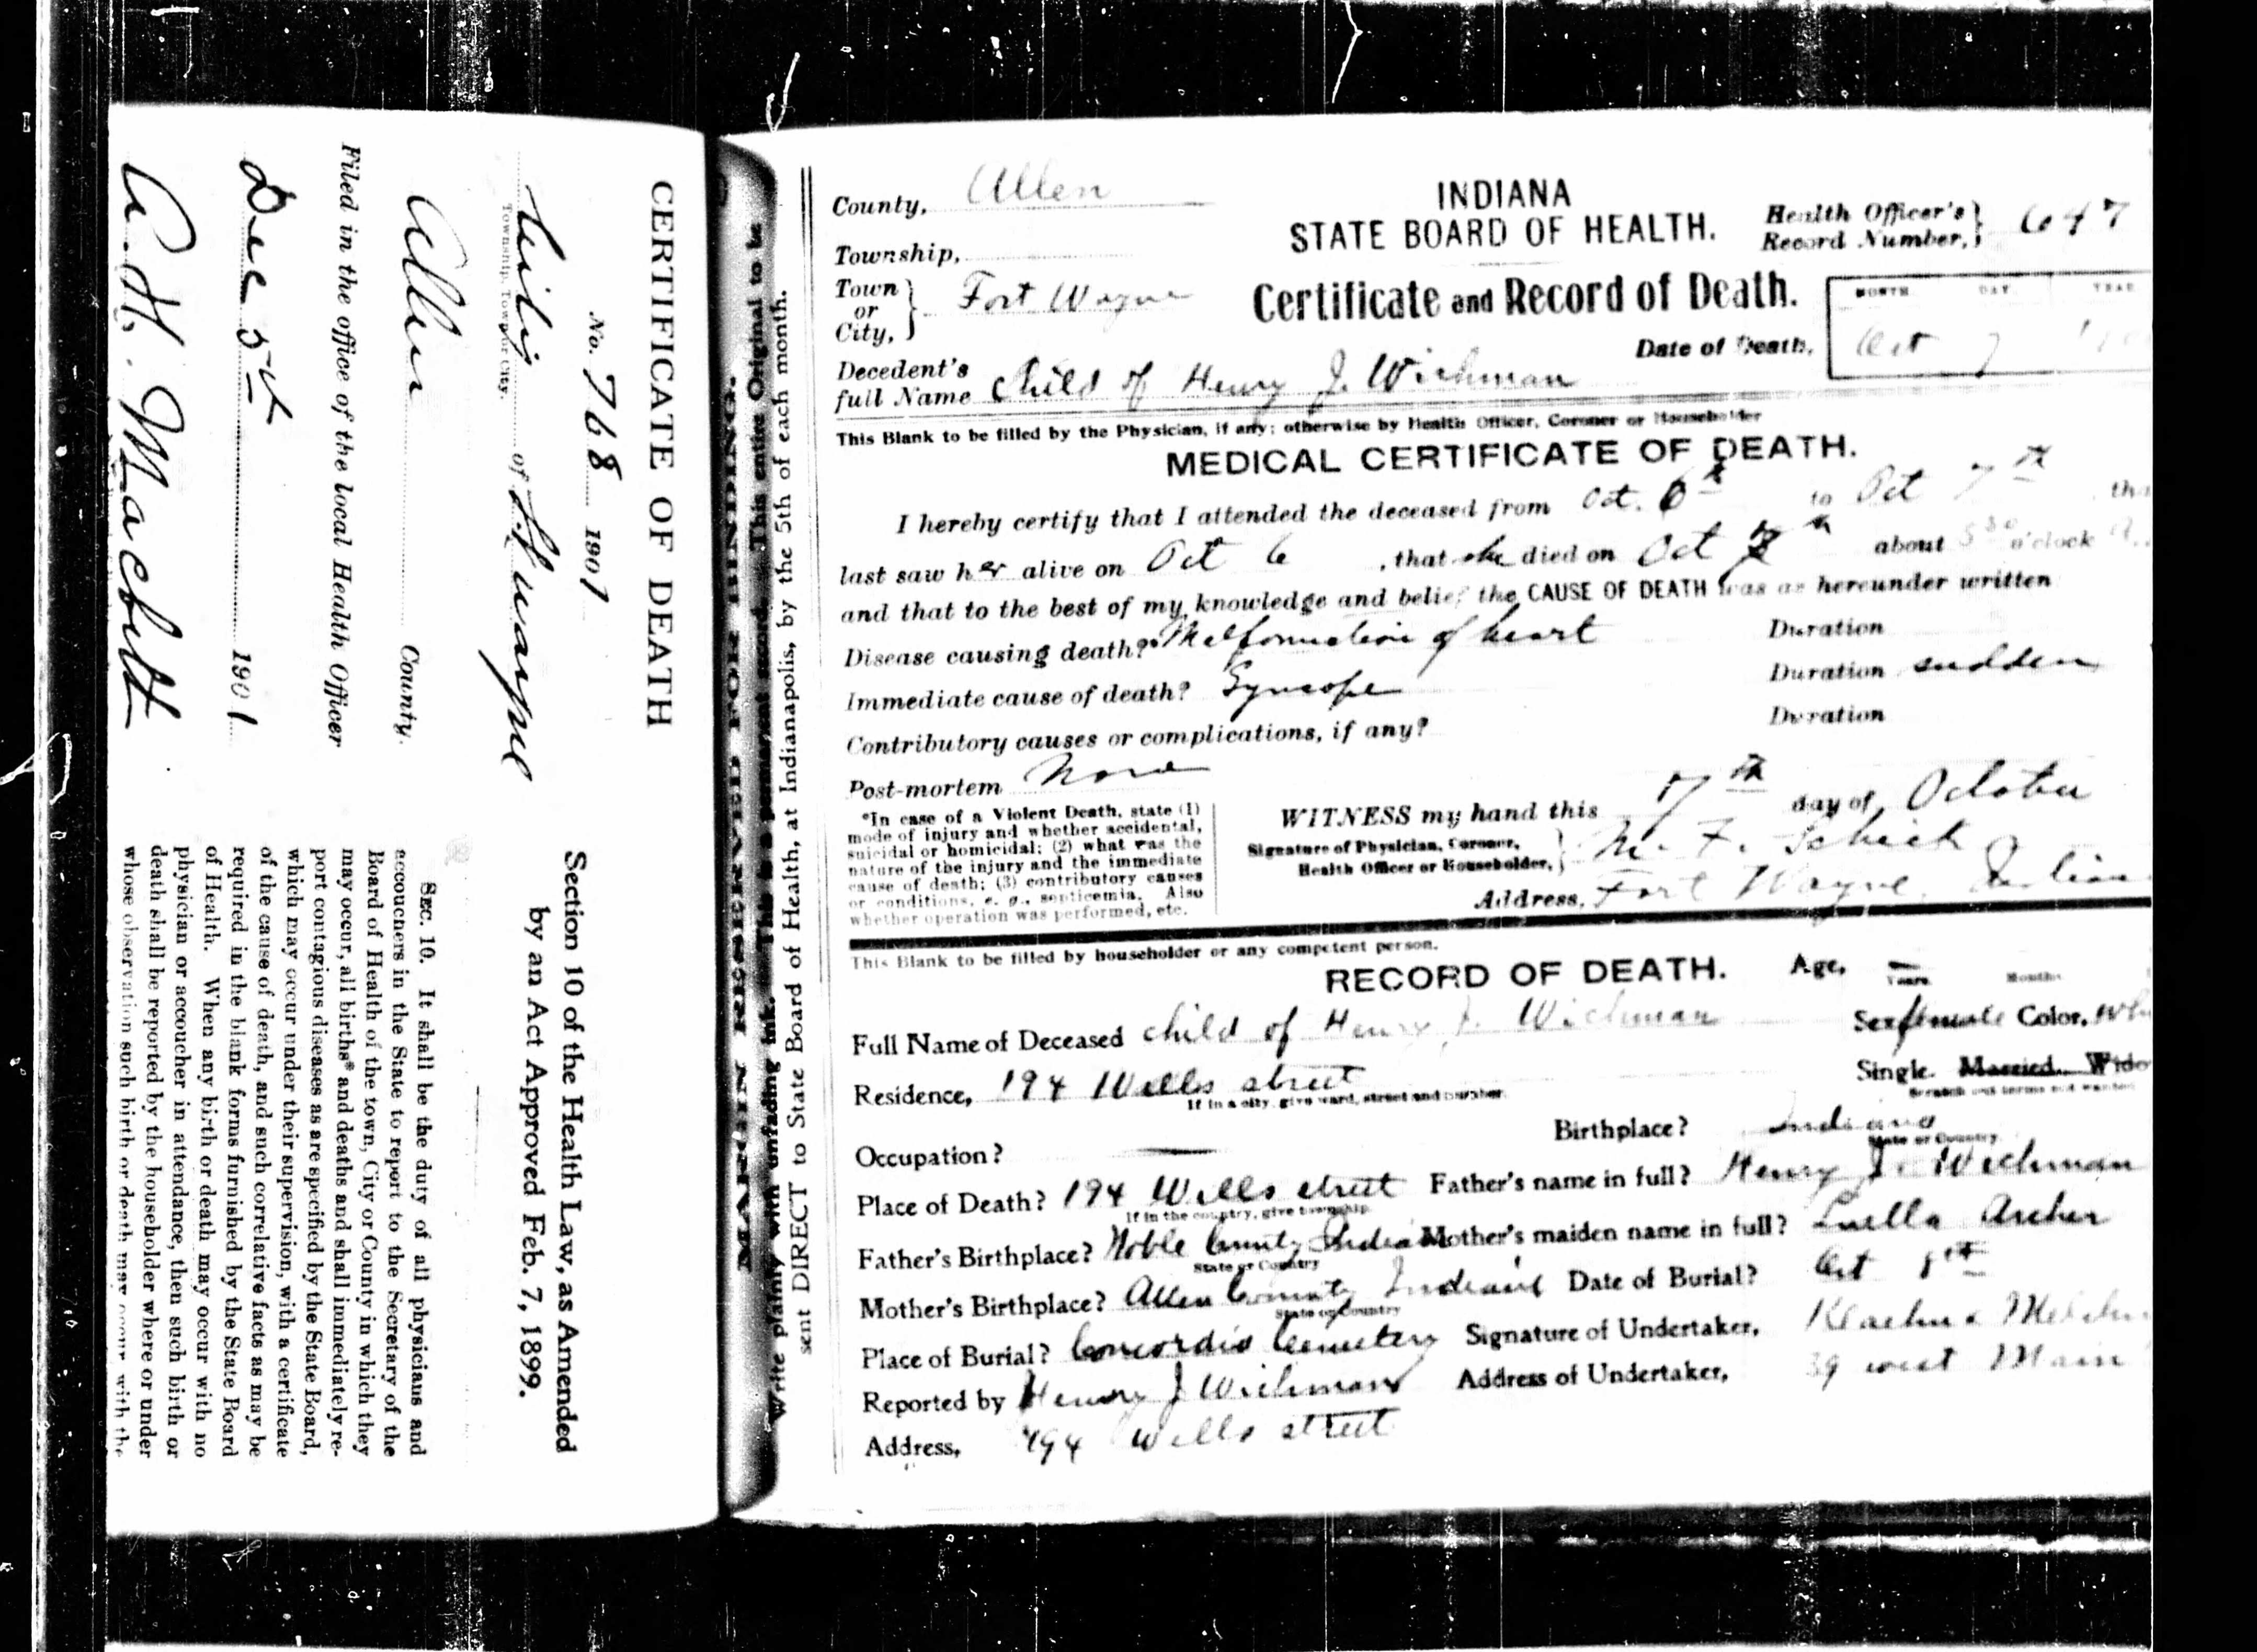 CERTIFICATE OF DEATH
No. 768 1901
City of Ft. Wayne
Township, Town or City.
Allen County.
Filed in the office of the local Health Officer
Dec 5th 1901
A. H. Macbeth
Section 10 of the Health Law, as Amended
by an Act Approved Feb. 7, 1899.
SEC. 10. It shall be the duty of all physicians and
accouchers in the State to report to the Secretary of the
Board of Health of the town, City or County in which they
may occur, all births* and deaths and shall immediately re-
port contagious diseases as are specified by the State Board,
which may occur under their supervision, with a certificate
of the cause of death, and such correlative facts as may be
required in the blank forms furnished by the State Board
of Health. When any birth or death may occur with no
physician or accoucher in attendance, then such birth or
death shall be reported by the householder where or under
whose observation such birth or death may occur with the
MARGIN RESERVED FOR BINDING.
Write plainly with unfading ink. This is a permanent record. This entire Original to be
sent DIRECT to State Board of Health, at Indianapolis, by the 5th of each month.
County, Allen
INDIANA
STATE BOARD OF HEALTH.
Health Officer's
Record Number, 647
Township,
Town
or
City, Fort Wayne
Certificate and Record of Death.
MONTH DAY YEAR
Date of Death, Oct 7
Decedent's
full Name Child of Henry J. Wichman
This Blank to be filled by the Physician, if any; otherwise by Health Officer, Coroner or Householder
MEDICAL CERTIFICATE OF DEATH.
I hereby certify that I attended the deceased from Oct. 6th to Oct 7th
last saw her alive on Oct 6, that she died on Oct 7th about 5 30 o'clock
and that to the best of my knowledge and belief the CAUSE OF DEATH was as hereunder written
Disease causing death?* Malformation of heart Duration
Immediate cause of death? Syncope Duration sudden
Contributory causes or complications, if any? Duration
Post-mortem None
*In case of a Violent Death, state (1)
mode of injury and whether accidental,
suicidal or homicidal; (2) what was the
nature of the injury and the immediate
cause of death; (3) contributory causes
or conditions, e. g., septicemia. Also
whether operation was performed, etc.
WITNESS my hand this 7th day of October
Signature of Physician, Coroner,
Health Officer or Householder, M. F. Schick
Address, Fort Wayne
This Blank to be filled by householder or any competent person.
RECORD OF DEATH. Age, —
Years. Months
Full Name of Deceased child of Henry J. Wichman Sex female Color,
Residence, 194 Wells street Single. Married.
If in a city, give ward, street and number. Scratch out terms not wanted
Occupation? — Birthplace? Indiana
State or Country
Place of Death? 194 Wells street Father's name in full? Henry J. Wichman
If in the country, give township.
Father's Birthplace? Noble County Indiana Mother's maiden name in full? Luella Archer
State or Country
Mother's Birthplace? Allen County Indiana Date of Burial? Oct 8th
State or Country
Place of Burial? Concordia Cemetery Signature of Undertaker, Klaehn &
Reported by Henry J Wichman Address of Undertaker, 39 west Main
Address, 194 Wells street